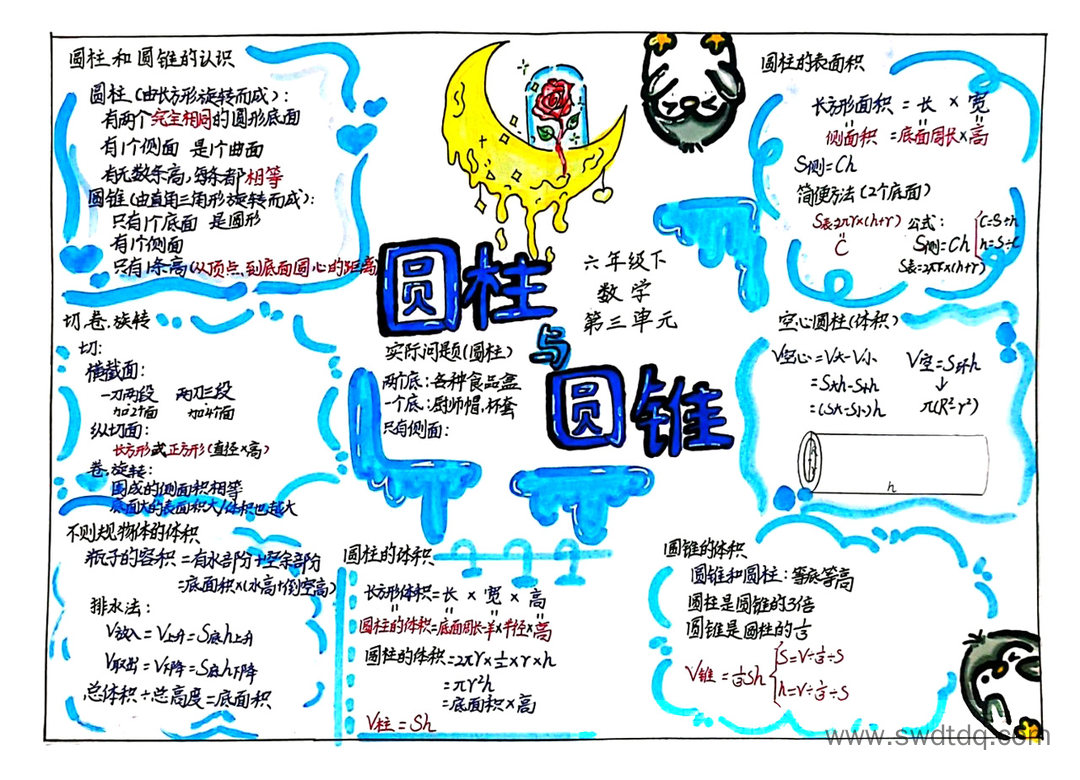 圆柱和圆锥的认识
圆柱(由长方形旋转而成):
有两个完全相同的圆形底面
有1个侧面 是1个曲面
有无数条高,每条都相等
圆锥(由直角三角形旋转而成):
只有1个底面 是圆形
有1个侧面
只有1条高(从顶点到底面圆心的距离)
切,卷,旋转
切:
横截面:
一刀两段 两刀三段
加2个面 加4个面
纵切面:
长方形或正方形(直径×高)
卷,旋转:
围成的侧面积相等
底面大的表面积大/体积也越大
不则规物体的体积
瓶子的容积=有水部分+空余部分
=底面积×(水高+倒空高)
排水法:
V放入=V上升=S底h上升
V取出=V下降=S底h下降
总体积÷总高度=底面积
圆柱
与
圆锥
六年级下
数学
第三单元
实际问题(圆柱)
两个底:各种食品盒
一个底:厨师帽,杯套
只有侧面:
圆柱的体积
长方形体积=长×宽×高
圆柱的体积=底面周长一半×半径×高
圆柱的体积=2πr×½×r×h
=πr²h
=底面积×高
V柱=Sh
圆柱的表面积
长方形面积=长×宽
侧面积=底面周长×高
S侧=Ch
简便方法(2个底面)
S表=2πr×(h+r) 公式:
C
S侧=Ch
C=S÷h
h=S÷C
S表=2πr×(h+r)
空心圆柱(体积)
V空心=V大-V小 V空=S环h
=S大h-S小h ↓
=(S大-S小)h π(R²-r²)
h
圆锥的体积
圆锥和圆柱:等底等高
圆柱是圆锥的3倍
圆锥是圆柱的⅓
V锥=⅓Sh
S=V÷⅓÷S
h=V÷⅓÷S
www.swdtdq.com